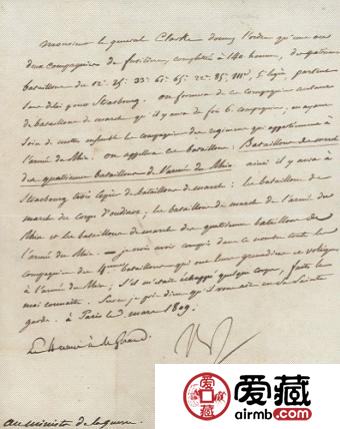 Monsieur le general Clarke donnez l'ordre qu'une ou
deux compagnies de fusiliers, complétés à 140 hommes, de quatrièmes
bataillons du 12e 25e 33e 61e 65e 22e 85e 111e, 5e légère, partent
sans délai pour Strasbourg. On formera de ces compagnies autant
de bataillons de marche qu'il y aura de fois 6 compagnies, en ayant
soin de mettre ensemble les compagnies des régimens qui appartiennent à
l'armée du Rhin. On appellera ce bataillon: Bataillon de marche
des quatrièmes bataillons de l'armée du Rhin ainsi il y aura à
Strasbourg trois espèces de bataillons de marche: les bataillons de
marche du corps d'Oudinot; les bataillons de marche de l'armée du
Rhin et les bataillons de marche des quatrièmes bataillons de
l'armée du Rhin. — je crois avoir compris dans ce nombre toutes les
compagnies des 4mes bataillons qui ont leurs grenadiers et voltigeurs
à l'armée du Rhin; s'il m'était échappé quelque corps, faites le
moi connaître. Sur ce, je prie Dieu qu'il vous ait en sa Sainte
garde. à Paris le mars 1809.
au ministre de la guerre.
爱藏
airmb.com